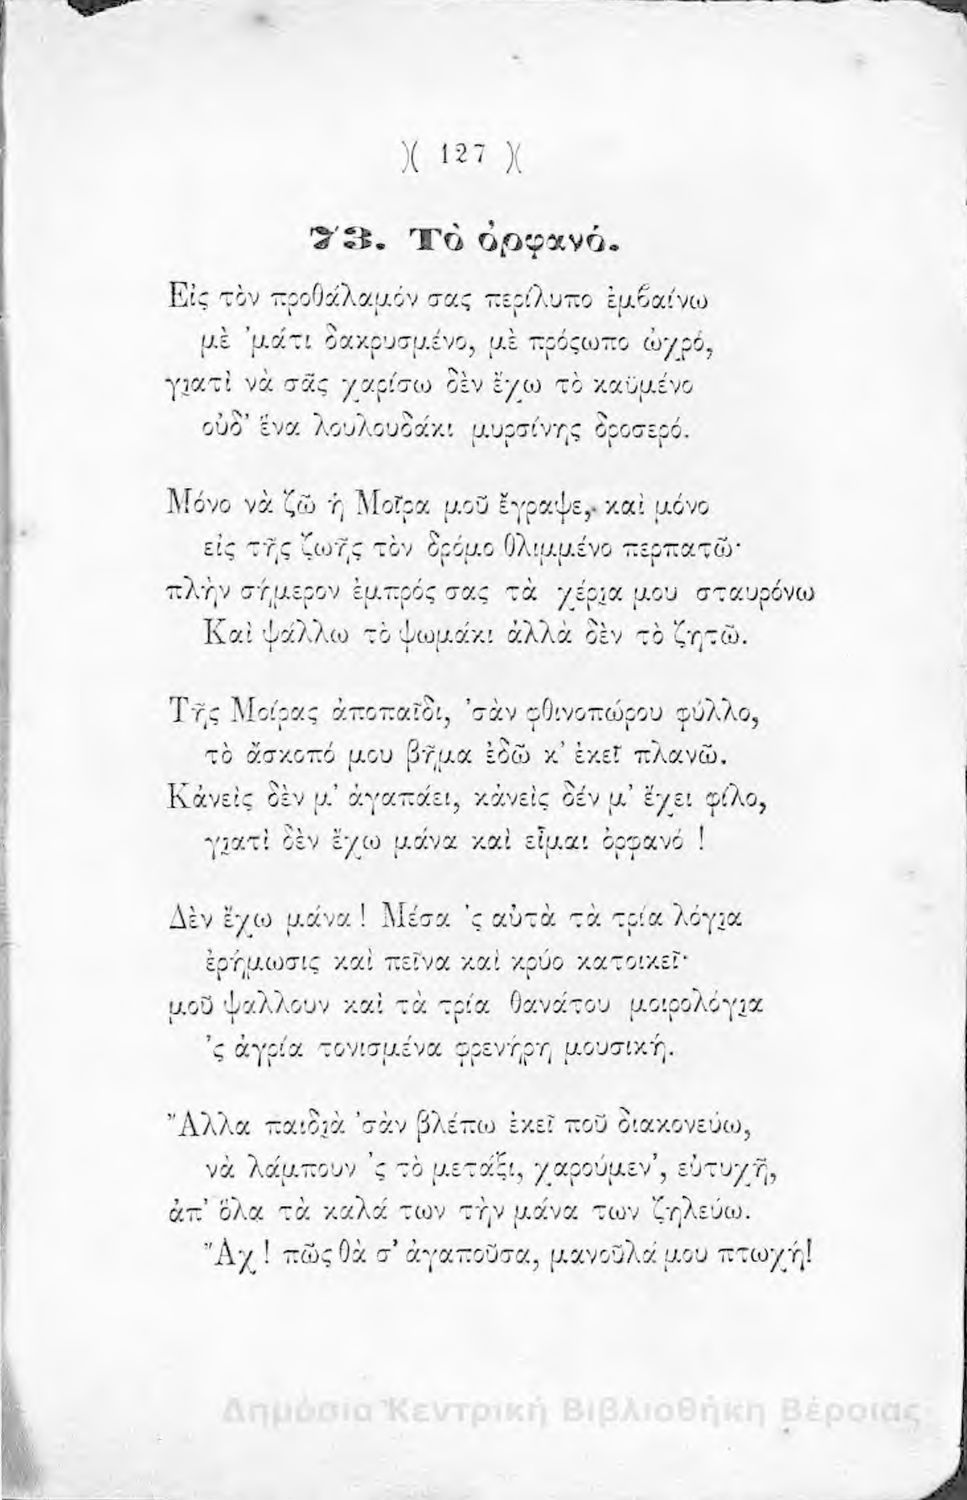 )( 127 )(
73. Τὸ ὀρφανό.
Εἰς τὸν προθάλαμόν σας περίλυπο ἐμβαίνω
μὲ ’μάτι δακρυσμένο, μὲ πρόςωπο ὠχρό,
γιατὶ νὰ σᾶς χαρίσω δὲν ἔχω τὸ καϋμένο
οὐδ’ ἕνα λουλουδάκι μυρσίνης δροσερό.
Μόνο νὰ ζῶ ἡ Μοῖρα μοῦ ἔγραψε, καὶ μόνο
εἰς τῆς ζωῆς τὸν δρόμο θλιμμένο περπατῶ·
πλὴν σήμερον ἐμπρός σας τὰ χέρια μου σταυρόνω
Καὶ ψάλλω τὸ ψωμάκι ἀλλὰ δὲν τὸ ζητῶ.
Τῆς Μοίρας ἀποπαῖδι, ’σὰν φθινοπώρου φύλλο,
τὸ ἄσκοπό μου βῆμα ἐδῶ κ’ ἐκεῖ πλανῶ.
Κἀνεὶς δὲν μ’ ἀγαπάει, κἀνεὶς δέν μ’ ἔχει φίλο,
γιατὶ δὲν ἔχω μάνα καὶ εἶμαι ὀρφανό !
Δὲν ἔχω μάνα ! Μέσα ’ς αὐτὰ τὰ τρία λόγια
ἐρήμωσις καὶ πεῖνα καὶ κρύο κατοικεῖ·
μοῦ ψαλλουν καὶ τὰ τρία θανάτου μοιρολόγια
’ς ἀγρία τονισμένα φρενήρη μουσική.
Ἄλλα παιδιὰ ’σὰν βλέπω ἐκεῖ ποῦ διακονεύω,
νὰ λάμπουν ’ς τὸ μετάξι, χαρούμεν’, εὐτυχῆ,
ἀπ’ ὅλα τὰ καλά των τὴν μάνα των ζηλεύω.
Ἄχ ! πῶς θὰ σ’ ἀγαποῦσα, μανοῦλά μου πτωχή!
Δημόσια Κεντρική Βιβλιοθήκη Βέροιας